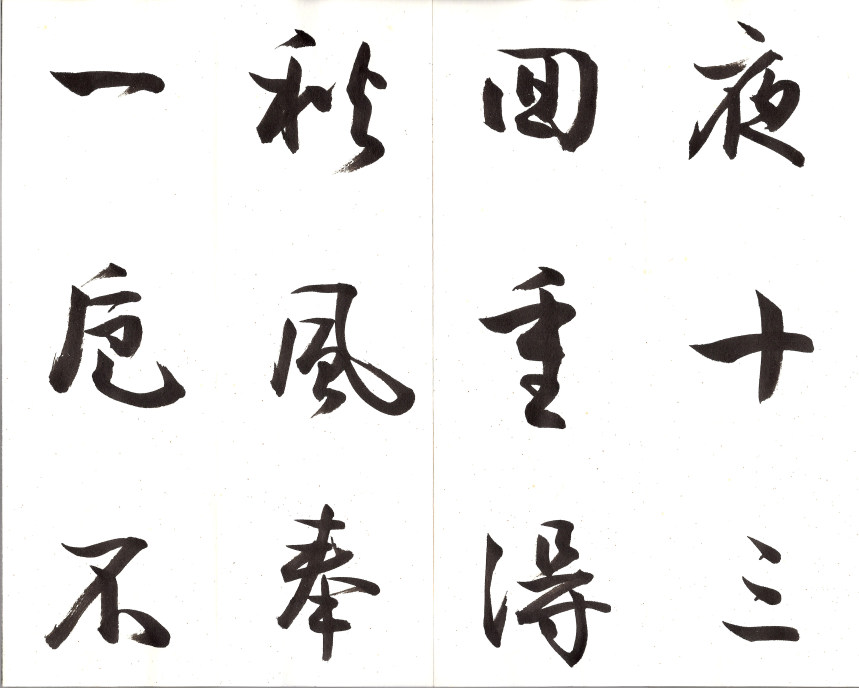 夜十三
回重得
秋風奉
一巵不